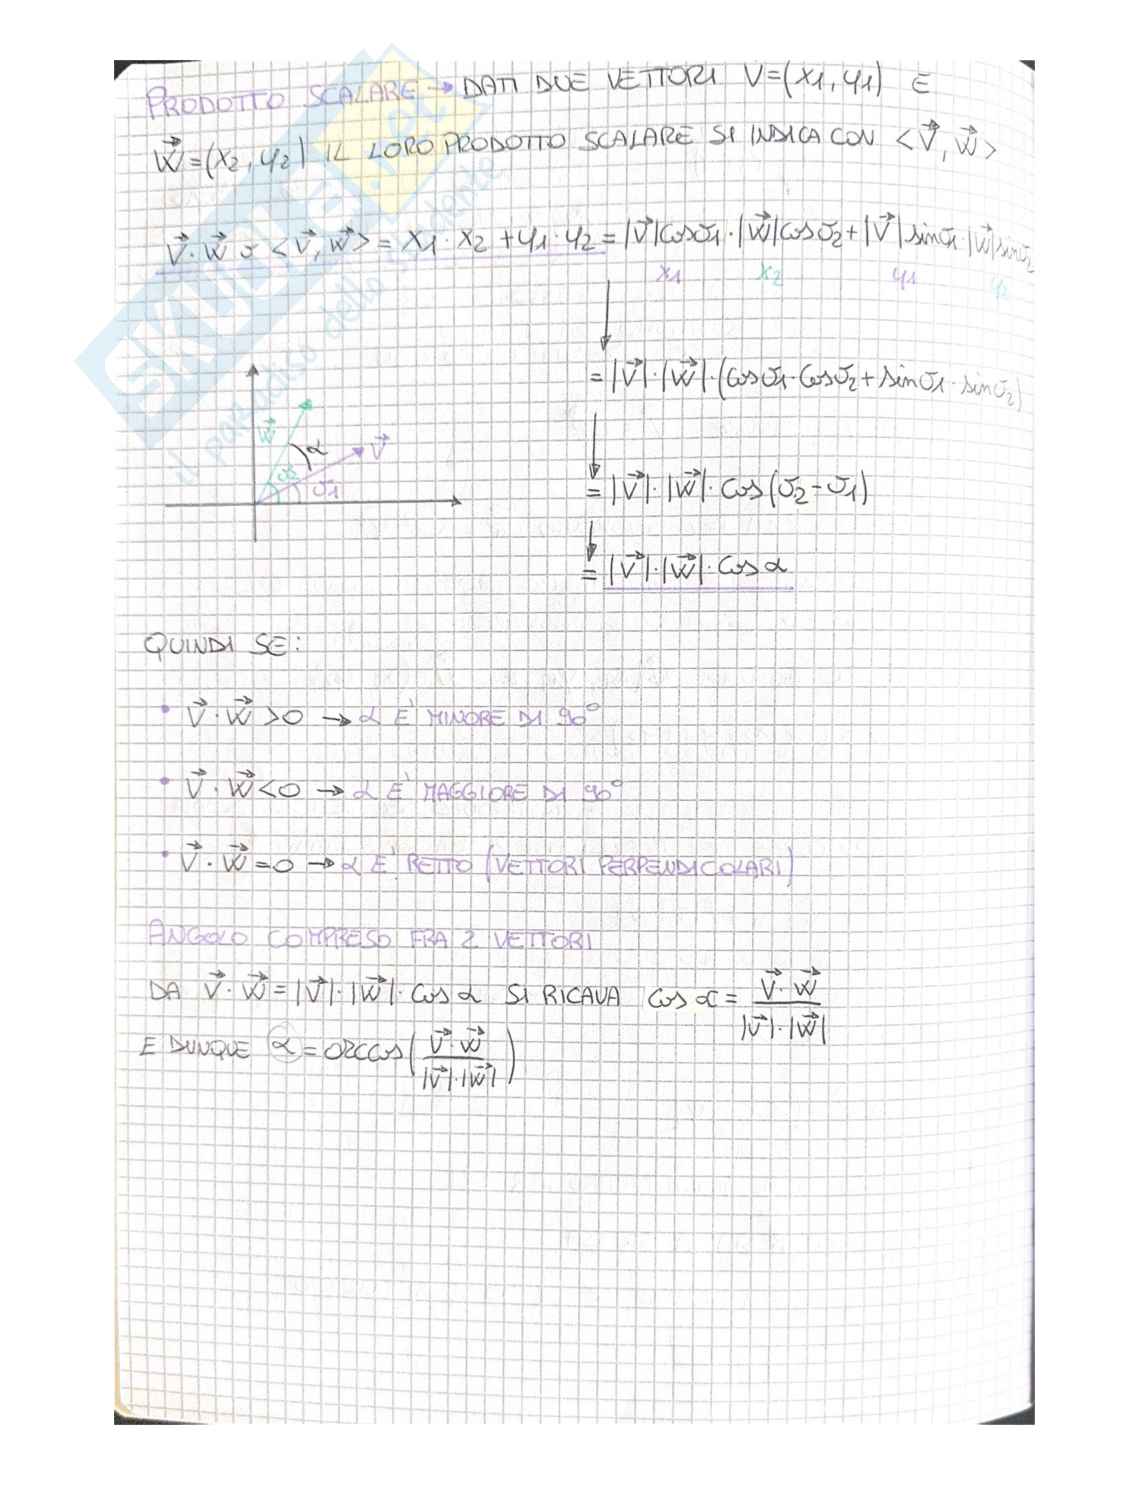 PRODOTTO SCALARE → DATI DUE VETTORI V=(x1, y1) E
W⃗=(x2, y2) IL LORO PRODOTTO SCALARE SI INDICA CON <V⃗, W⃗>
V⃗·W⃗ o <V⃗, W⃗> = x1·x2 + y1·y2 = |V⃗|cosϑ1·|W⃗|cosϑ2 + |V⃗|sinϑ1·|W⃗|sinϑ2
x1 x2 y1 y2
= |V⃗|·|W⃗|·(cosϑ1·cosϑ2 + sinϑ1·sinϑ2)
W⃗ α V⃗
ϑ2 ϑ1
= |V⃗|·|W⃗|·cos(ϑ2-ϑ1)
= |V⃗|·|W⃗|·cos α
QUINDI SE:
• V⃗·W⃗ >0 → α E' MINORE DI 90°
• V⃗·W⃗ <0 → α E' MAGGIORE DI 90°
• V⃗·W⃗ =0 → α E' RETTO (VETTORI PERPENDICOLARI)
ANGOLO COMPRESO FRA 2 VETTORI
DA V⃗·W⃗ = |V⃗|·|W⃗|·cos α SI RICAVA cos α = V⃗·W⃗ / |V⃗|·|W⃗|
E DUNQUE α = arccos(V⃗·W⃗ / |V⃗|·|W⃗|)
SKUOLA.net
il paradiso dello studente